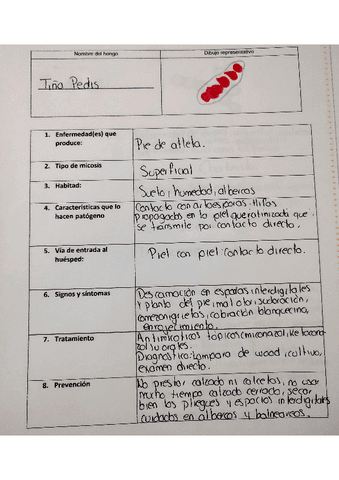 Nombre del hongo
Dibujo representativo
Tiña Pedis
1. Enfermedad(es) que
produce:
Pie de atleta.
2. Tipo de micosis
Superficial
3. Habitad:
Suelo, humedad, albercas
4. Características que lo
hacen patógeno
Contacto con artroesporas. Hifas
propagadas en la piel queratinizada que
se transmite por contacto directo.
5. Vía de entrada al
huésped:
Piel con piel contacto directo.
6. Signos y síntomas
Descamación en espacios interdigitales
y planta del pie, mal olor, sudoración,
comezon, grietas, coloración blanquecina,
enrojecimiento.
7. Tratamiento
Antimicoticos topicos (miconazol, ketocona-
zol) u orales.
Diagnostico: Lampara de wood, cultivo,
examen directo.
8. Prevención
No prestar calzado ni calcetas, no usar
mucho tiempo calzado cerrado, secar
bien los pliegues y espacios interdigitales
cuidados en albercas y balnearios.